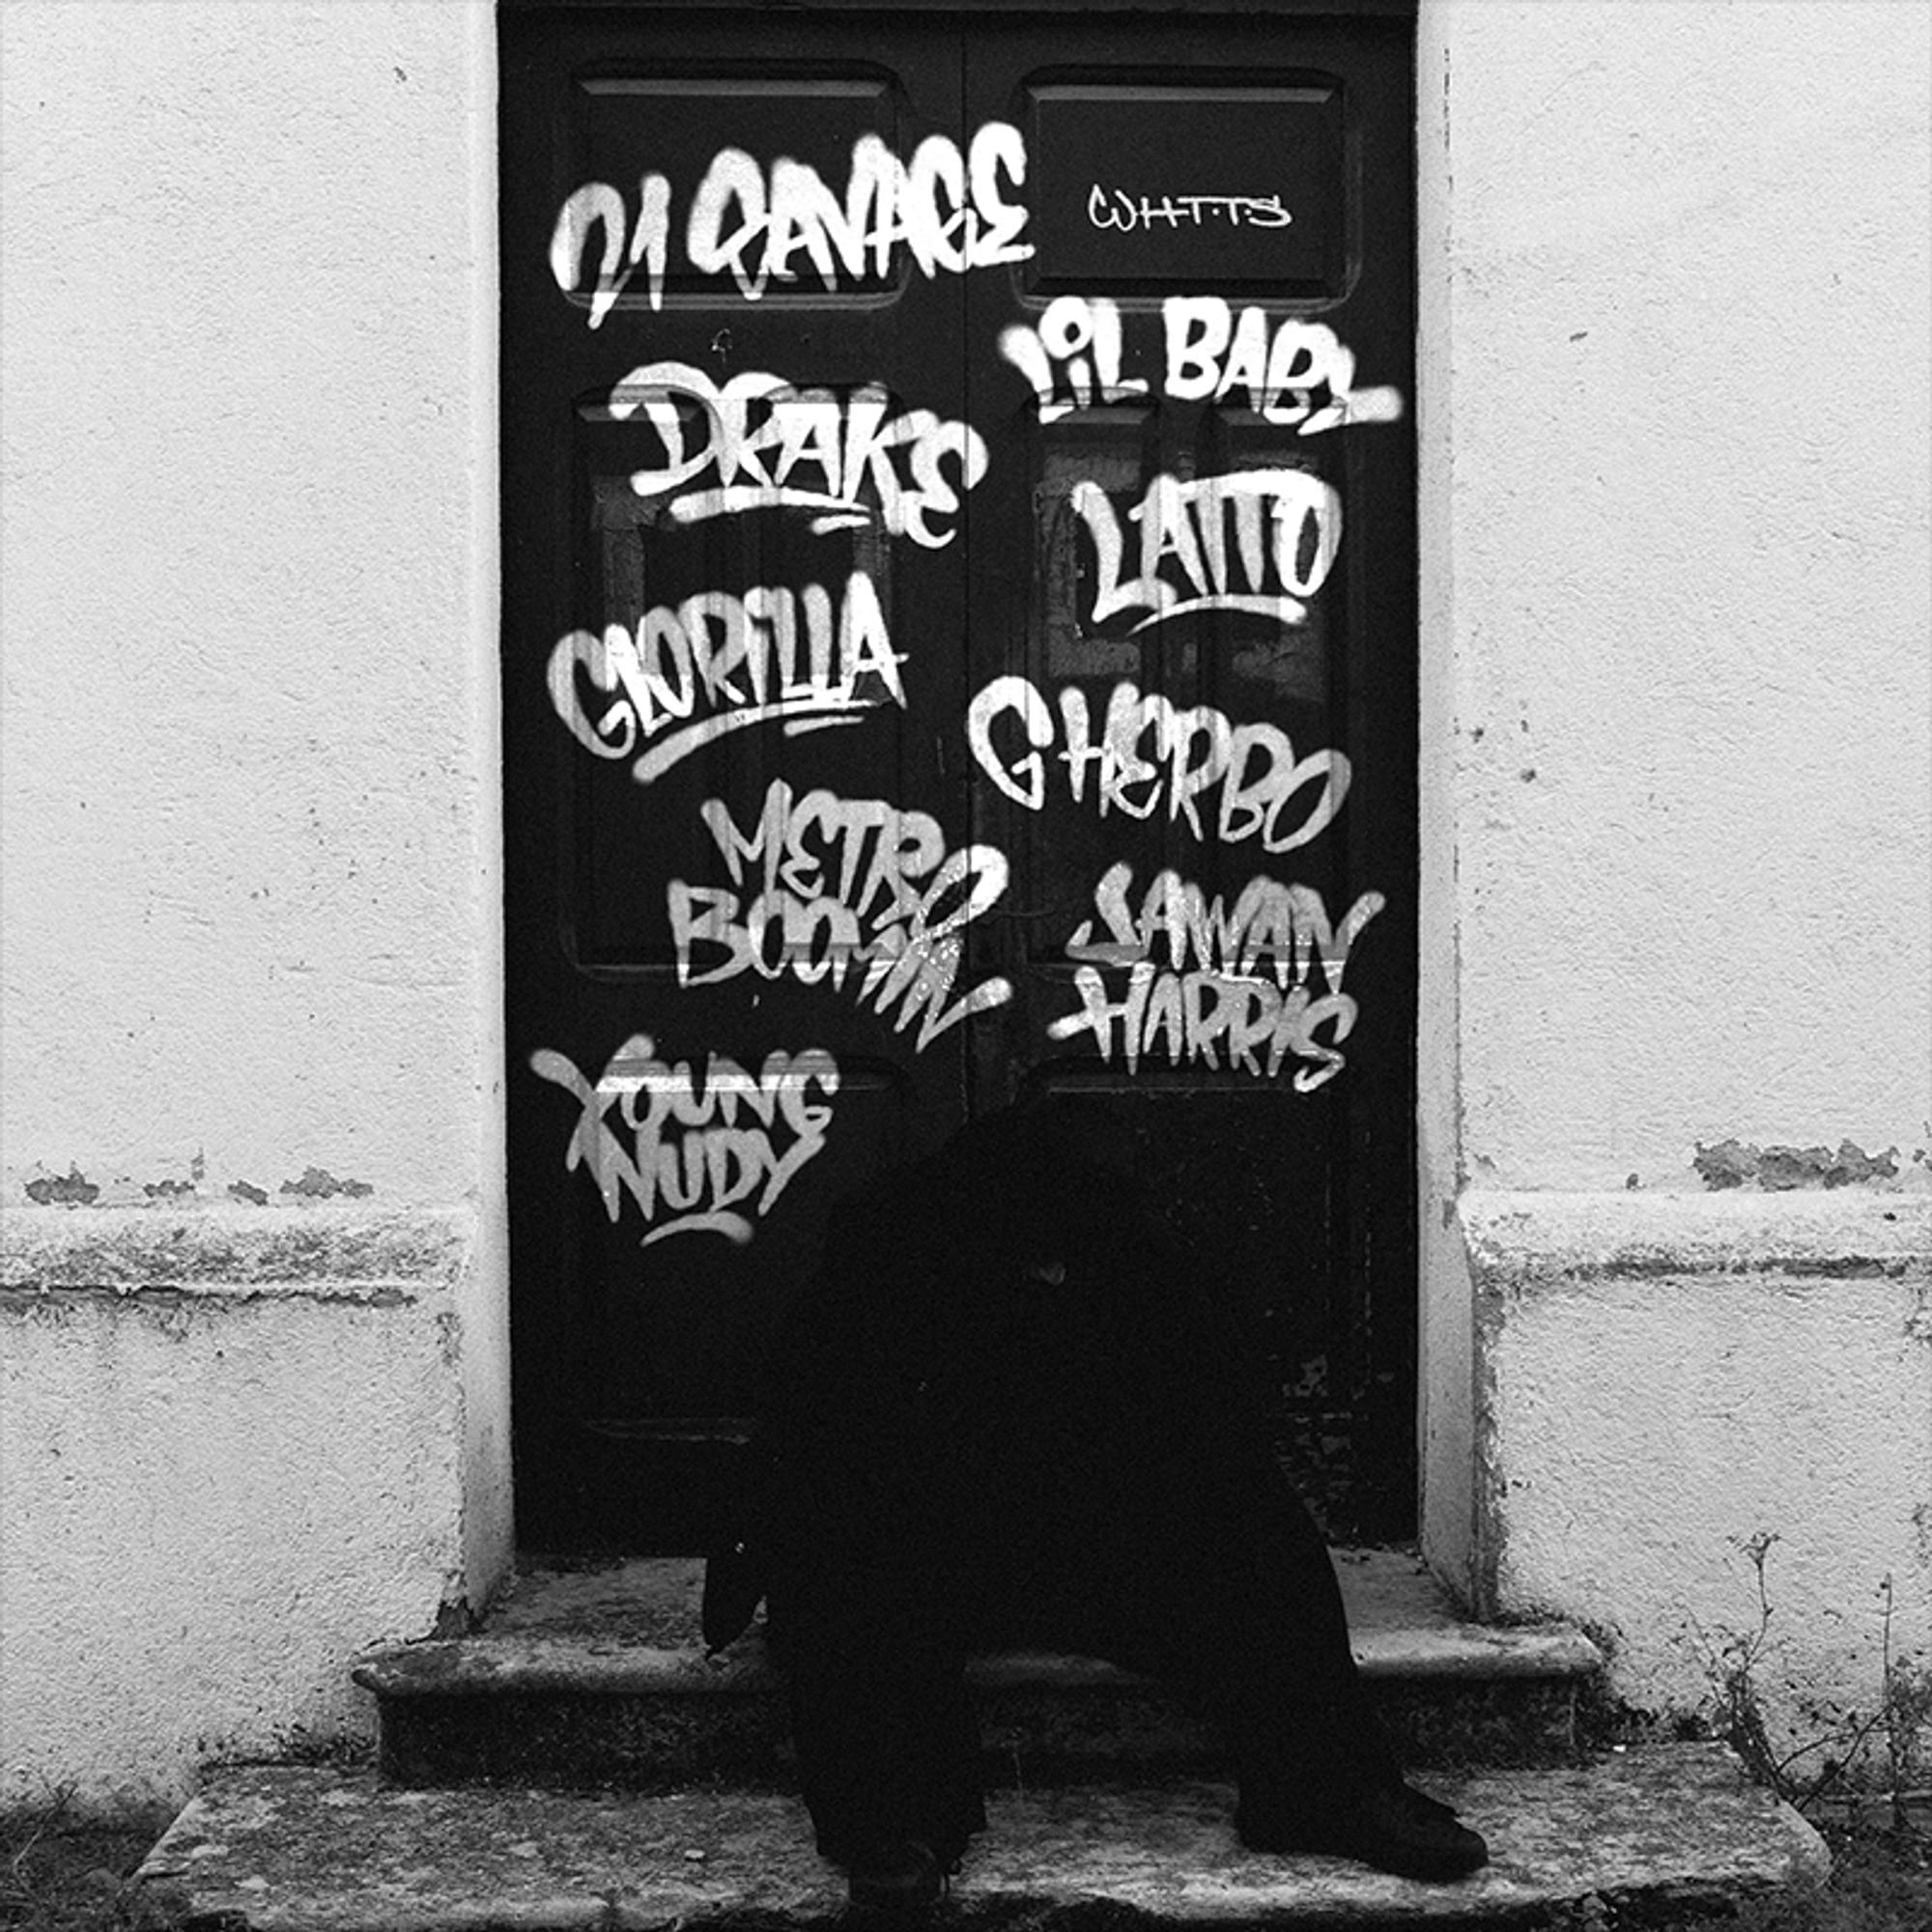 21 SAVAGE
W.H.T.T.S
LiL BABY
DRAKE
LATTO
GLORILLA
G HERBO
METRO
BOOMIN
JAWAN
HARRIS
YOUNG
NUDY